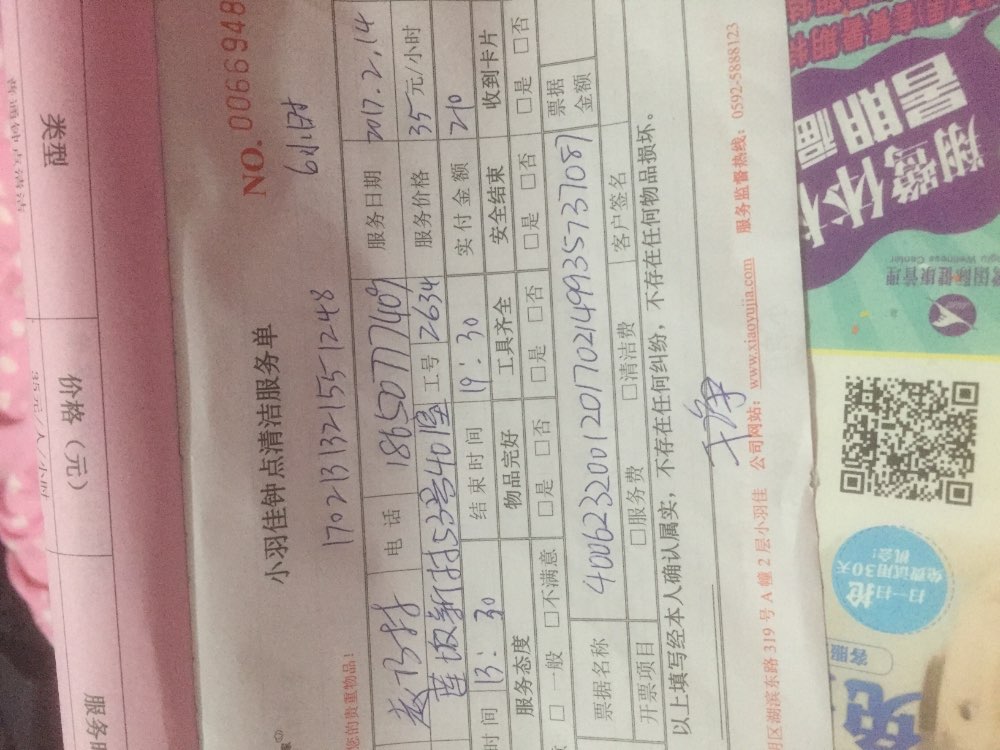 NO. 0066948
小羽佳钟点清洁服务单
170213132155 1248
6小时
您的贵重物品!
电话 18650777409 服务日期 2017.2.14
莲坂新村53号401室 工号 2634 服务价格 35元/小时
时间 13:30 结束时间 19:30 实付金额 210
服务态度 物品完好 工具齐全 安全结束 收到卡片
□ 一般 □不满意 □是 □否 □是 □否 □是 □否 □是 □否
票据名称 4006232001201702149935737087 票据金额
开票项目 □服务费 □清洁费 客户签名
以上填写经本人确认属实,不存在任何纠纷,不存在任何物品损坏。
干净
明区湖滨东路 319 号 A 幢 2 层小羽佳 公司网站:www.xiaoyujia.com 服务监督热线:0592-5888123
类型
价格(元)
服务
国际健康管理
Wellness Center
扫一扫
抢
免费试用30天
机会!
客服